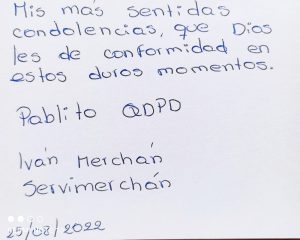 Mis más sentidas
condolencias, que Dios
les de conformidad en
estos duros momentos.
Pablito QDPD
Iván Merchán
Servimerchán
25/08/2022